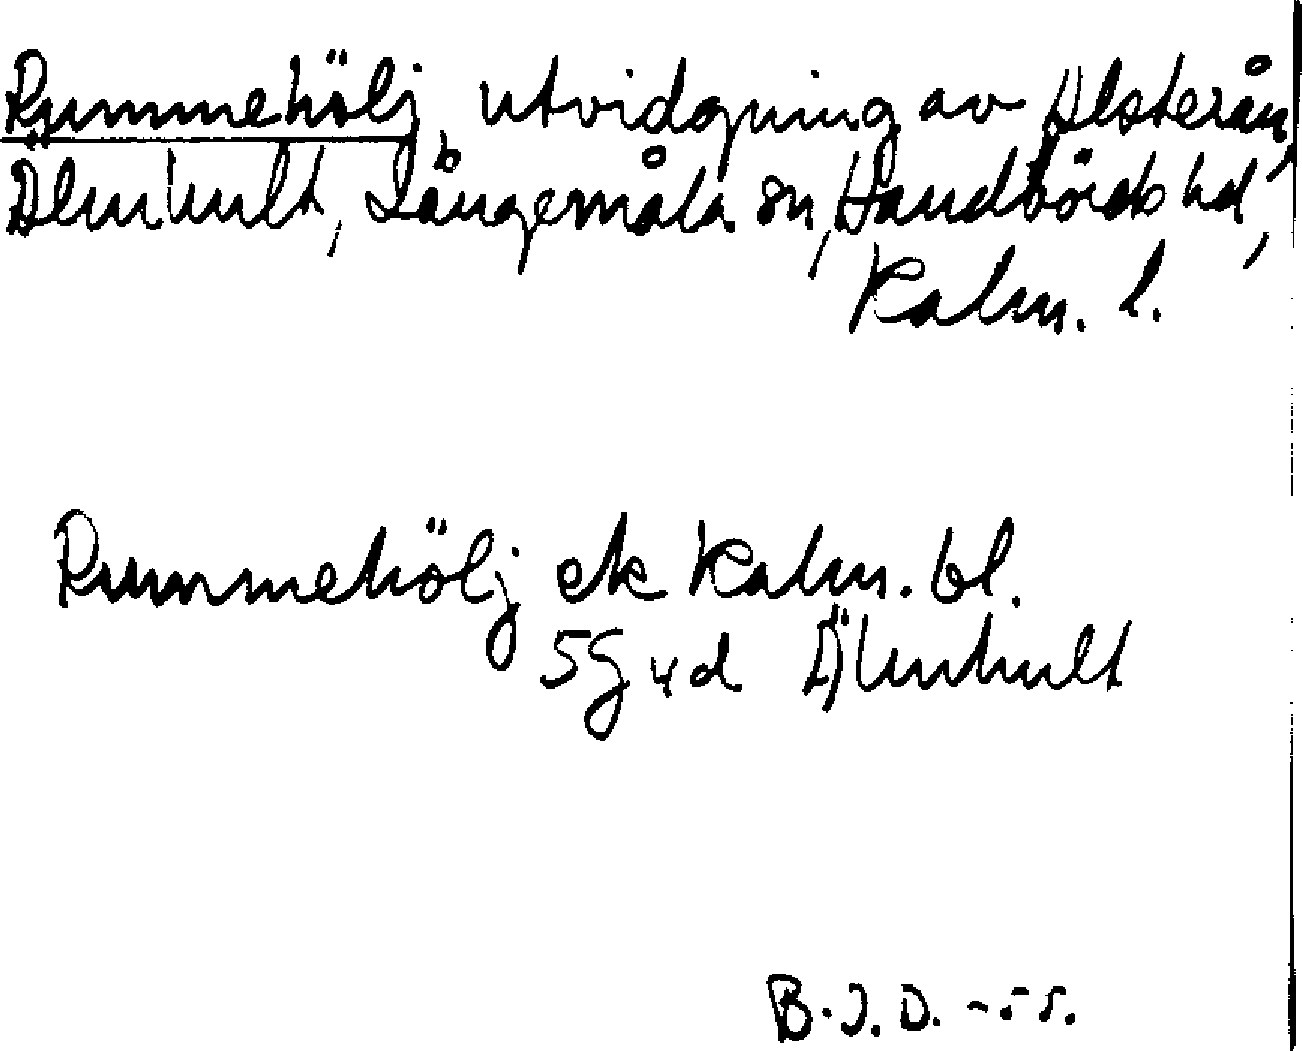 Rummehölj, utvidgning av Alsterån,
Älmhult, Långemåla sn, Handbörds hd,
Kalm. l.
Rummehölj ek Kalm. bl.
5g vd Älmhult
B.J.D. -55.